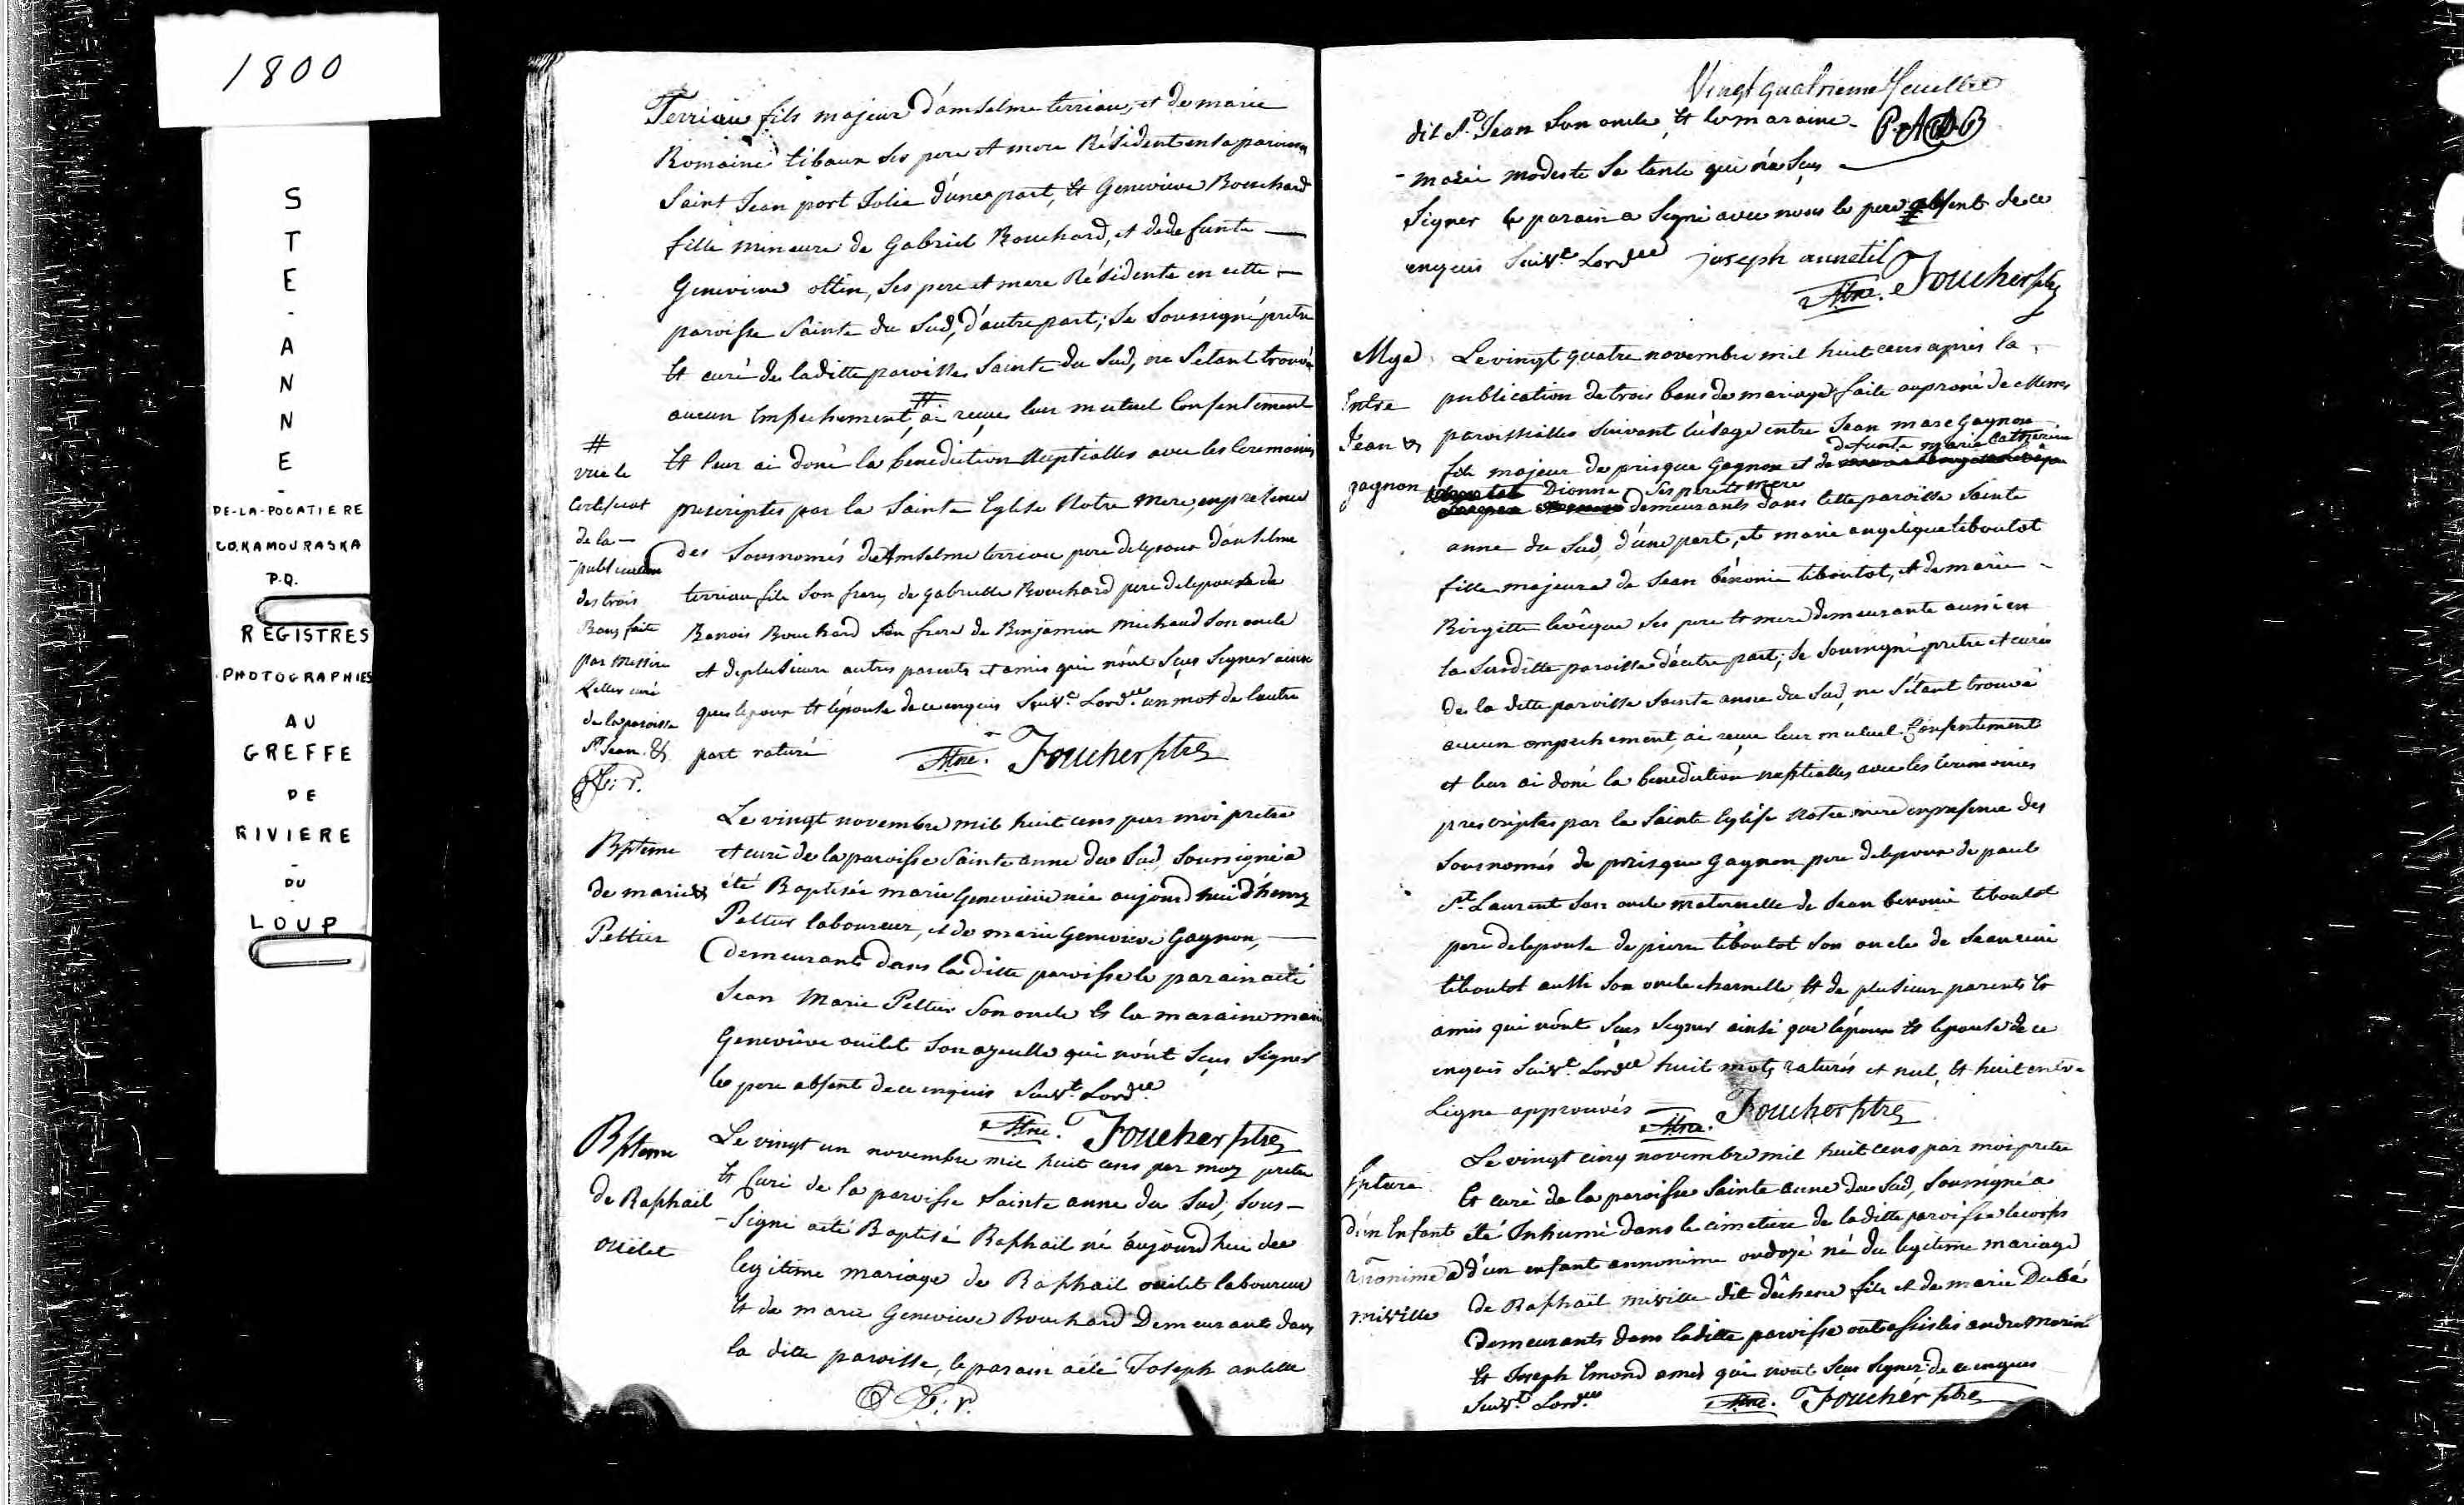 1800
STE-ANNE-
DE-LA-POCATIERE
CO. KAMOURASKA
P.Q.
REGISTRES
PHOTOGRAPHIES
AU
GREFFE
DE
RIVIERE
-
DU
-
LOUP
Terriau fils majeur d'amselme terriau, et de marie
Romaine tibaux ses pere et mere Résident en la paroisse
Saint Jean port Jolie d'une part, et Genevieve Bouchard
fille mineure de Gabriel Bouchard, et de defunte
Genevieve ses pere et mere Résidente en cette
paroisse Sainte du Sud, d'autre part; Je Soussigné pretre
et curé de la ditte paroisse Sainte du Sud, ne s'étant trouvé
aucun Empechement, # ai reçue leur mutuel Consentement
et leur ai doné la benediction Nuptialles avec les Ceremonies
prescriptes par la Sainte Eglise Notre Mere, en presence
des Sousnomés de Amselme terriau pere de lepoux d'anselme
terriau fils son frere, de gabrielle Bouchard pere de lepouse de
Benois Bouchard son frere de Benjamin Michaud son oncle
et deplusieurs autres parents et amis qui n'ont sçus signer ainsi
que lepoux et lépouse de ce enquis Suivt. Lordce. un mot de lautre
part raturé
Atne. Foucher ptre
#
vue le
Certificat
de la
-publication
des trois
Bans faite
par Messire
curé
de la paroisse
St Jean &
Le vingt novembre mil huit cens par moi pretre
et curé de la paroisse Sainte anne du Sud, Soussigné a
été Baptisée marie Genevieve née aujourd'hui d'henry
Peltier laboureur, et de marie Genevieve Gagnon,
demeurants dans la ditte paroisse le parain a été
Jean Marie Peltier Son oncle et la maraine marie
Genevieve ouilet Son ayeulle qui n'ont sçus signer
le pere absent de ce enquis Suivt. Lordce.
Atne. Foucher ptre
Bpteme
de marie &
Peltier
Le vingt un novembre mil huit cens par moy pretre
et Curé de la paroisse Sainte anne du Sud, sous-
-Signé a été Baptisé Raphaïl né aujourd'hui du
legitime mariage de Raphaïl ouilet laboureur
et de marie Genevieve Bouchard Demeurants dans
la ditte paroisse, le parain a été Joseph
Bpteme
de Raphaïl
ouilet
Vingt quatrieme feuillet
dit St. Jean Son oncle, et la maraine
-marie modeste sa tante qui n'a sçus
signer le parain a Signé avec nous le pere absent de ce
enquis Suivt. Lordce joseph
Atne. Foucher ptre
Mge
Entre
Jean &
gagnon
Le vingt quatre novembre mil huit cens après la
publication de trois bans de mariage faite au prone de Messes
paroissialles suivant l'usage entre Jean marc Gagnon
defunte marie Catherine
fils majeur de prisque Gagnon et de
Dionne ses pere et mere
demeurants dans cette paroisse Sainte
anne du Sud, d'une part, et marie angelique tiboutot
fille majeure de Jean bénonie tiboutot, et de marie
Birgitte levêque ses pere et mere demeurante aussi en
la Susditte paroisse d'autre part; Je Soussigné pretre et curé
de la ditte paroisse Sainte anne du Sud, ne s'étant trouvé
aucun empechement, ai reçue leur mutuel Consentement
et leur ai doné la benediction nuptialles avec les ceremonies
prescriptes par la Sainte Eglise Notre mere en presence des
Sousnomés de prisque Gagnon pere de lepoux de paul
St. Laurent son oncle maternelle de Jean benonie tiboutot
pere de lepouse de pierre tiboutot son oncle de Jean
tiboutot aussi son oncle charnelle et de plusieurs parents et
amis qui n'ont sçus signer ainsi que lépoux et lepouse de ce
enquis Suivt. Lordce huit mots raturés et nul, et huit entre
Ligne approuvés
Atne. Foucher ptre
Spture
d'un Enfant
annonime
miville
Le vingt cinq novembre mil huit cens par moi pretre
et curé de la paroisse Sainte anne du Sud, Soussigné a
été Inhumé dans le cimetiere de la ditte paroisse le corps
d'un enfant annonime ondoyé né du legitime mariage
de Raphaïl miville dit dêchene fils et de marie Dubé
Demeurants dans la ditte paroisse ont assistés andre Morin
et Joseph Emond amis qui n'ont sçus signer de ce enquis
Suivt. Lordce.
Atne. Foucher ptre